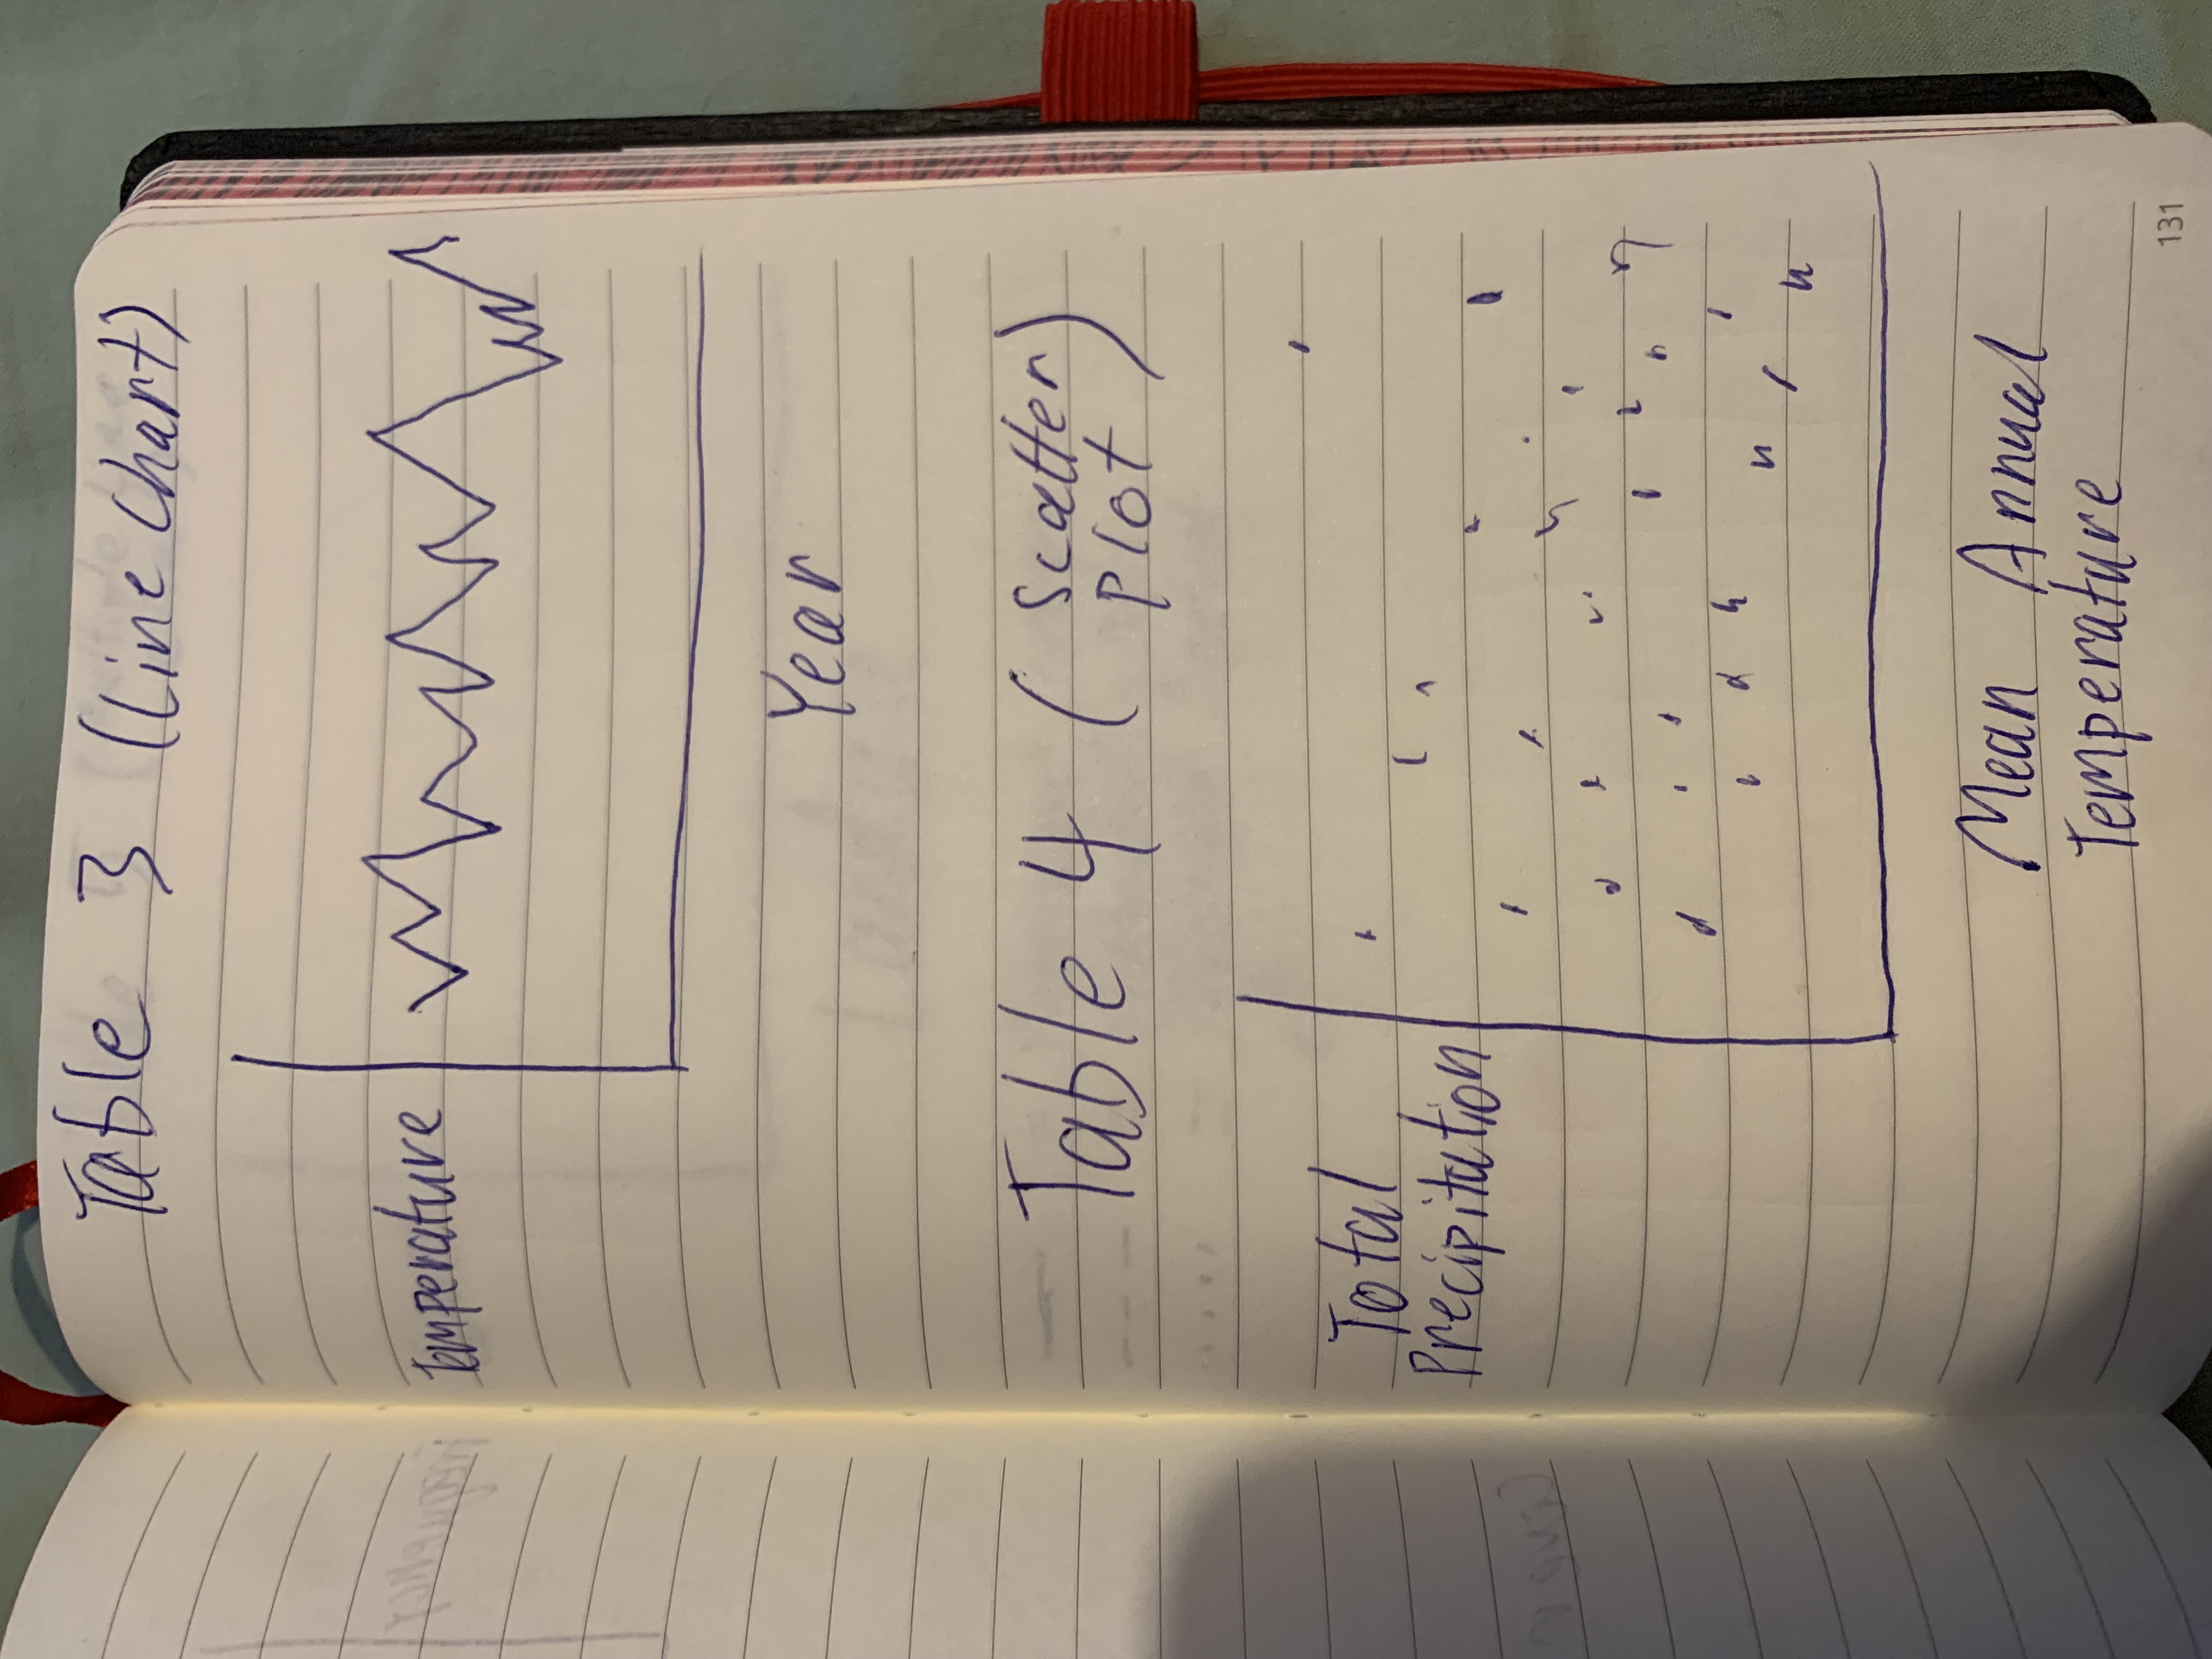 Table 3 (Line Chart)
Temperature
Year
Table 4 (Scatter
Plot)
Total
Precipitation
Mean Annual
Temperature
131